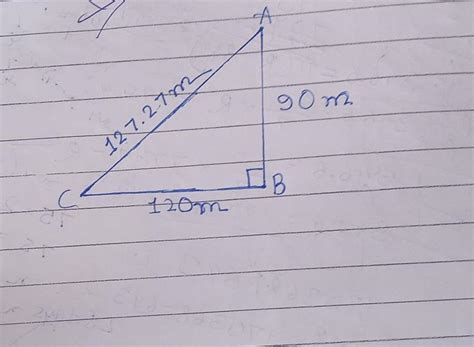 A
127.27m
90m
C
B
120m